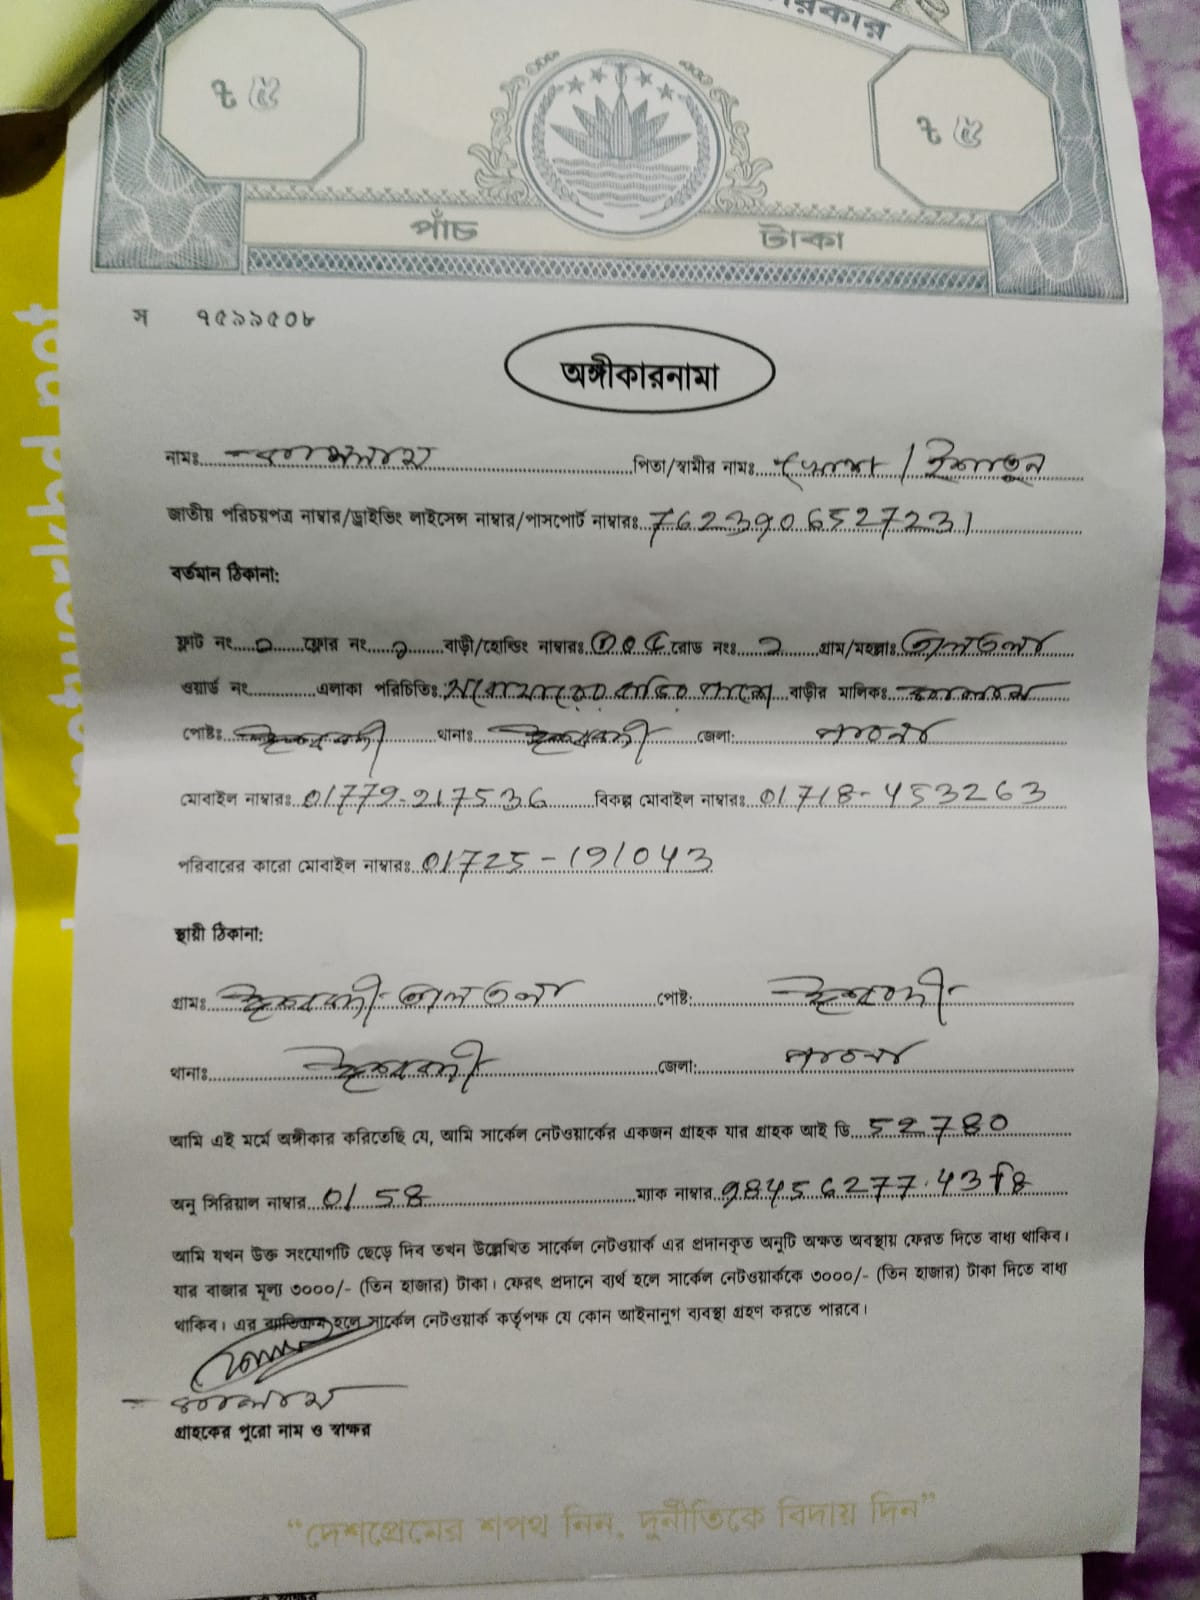 রকার
৳ ৫
৳ ৫
পাঁচ টাকা
স ৭৫৯৯৫০৮
অঙ্গীকারনামা
নামঃ পিতা/স্বামীর নামঃ
জাতীয় পরিচয়পত্র নাম্বার/ড্রাইভিং লাইসেন্স নাম্বার/পাসপোর্ট নাম্বারঃ 7623906527231
বর্তমান ঠিকানা:
ফ্লাট নং ফ্লোর নং বাড়ী/হোল্ডিং নাম্বারঃ রোড নংঃ গ্রাম/মহল্লাঃ তালতলা
ওয়ার্ড নং এলাকা পরিচিতিঃ বাড়ীর মালিকঃ
পোষ্টঃ ঈশ্বরদী থানাঃ ঈশ্বরদী জেলা: পাবনা
মোবাইল নাম্বারঃ 01779-217536 বিকল্প মোবাইল নাম্বারঃ 01718-453263
পরিবারের কারো মোবাইল নাম্বারঃ 01725-191043
স্থায়ী ঠিকানা:
গ্রামঃ ঈশ্বরদী তালতলা পোষ্ট: ঈশ্বরদী
থানাঃ ঈশ্বরদী জেলা: পাবনা
আমি এই মর্মে অঙ্গীকার করিতেছি যে, আমি সার্কেল নেটওয়ার্কের একজন গ্রাহক যার গ্রাহক আই ডি 52780
অনু সিরিয়াল নাম্বার 0158 ম্যাক নাম্বার 98456277.43f8
আমি যখন উক্ত সংযোগটি ছেড়ে দিব তখন উল্লেখিত সার্কেল নেটওয়ার্ক এর প্রদানকৃত অনুটি অক্ষত অবস্থায় ফেরত দিতে বাধ্য থাকিব।
যার বাজার মূল্য ৩০০০/- (তিন হাজার) টাকা। ফেরৎ প্রদানে ব্যর্থ হলে সার্কেল নেটওয়ার্ককে ৩০০০/- (তিন হাজার) টাকা দিতে বাধ্য
থাকিব। এর ব্যতিক্রম হলে সার্কেল নেটওয়ার্ক কর্তৃপক্ষ যে কোন আইনানুগ ব্যবস্থা গ্রহণ করতে পারবে।
গ্রাহকের পুরো নাম ও স্বাক্ষর
“দেশপ্রেমের শপথ নিন, দুর্নীতিকে বিদায় দিন”